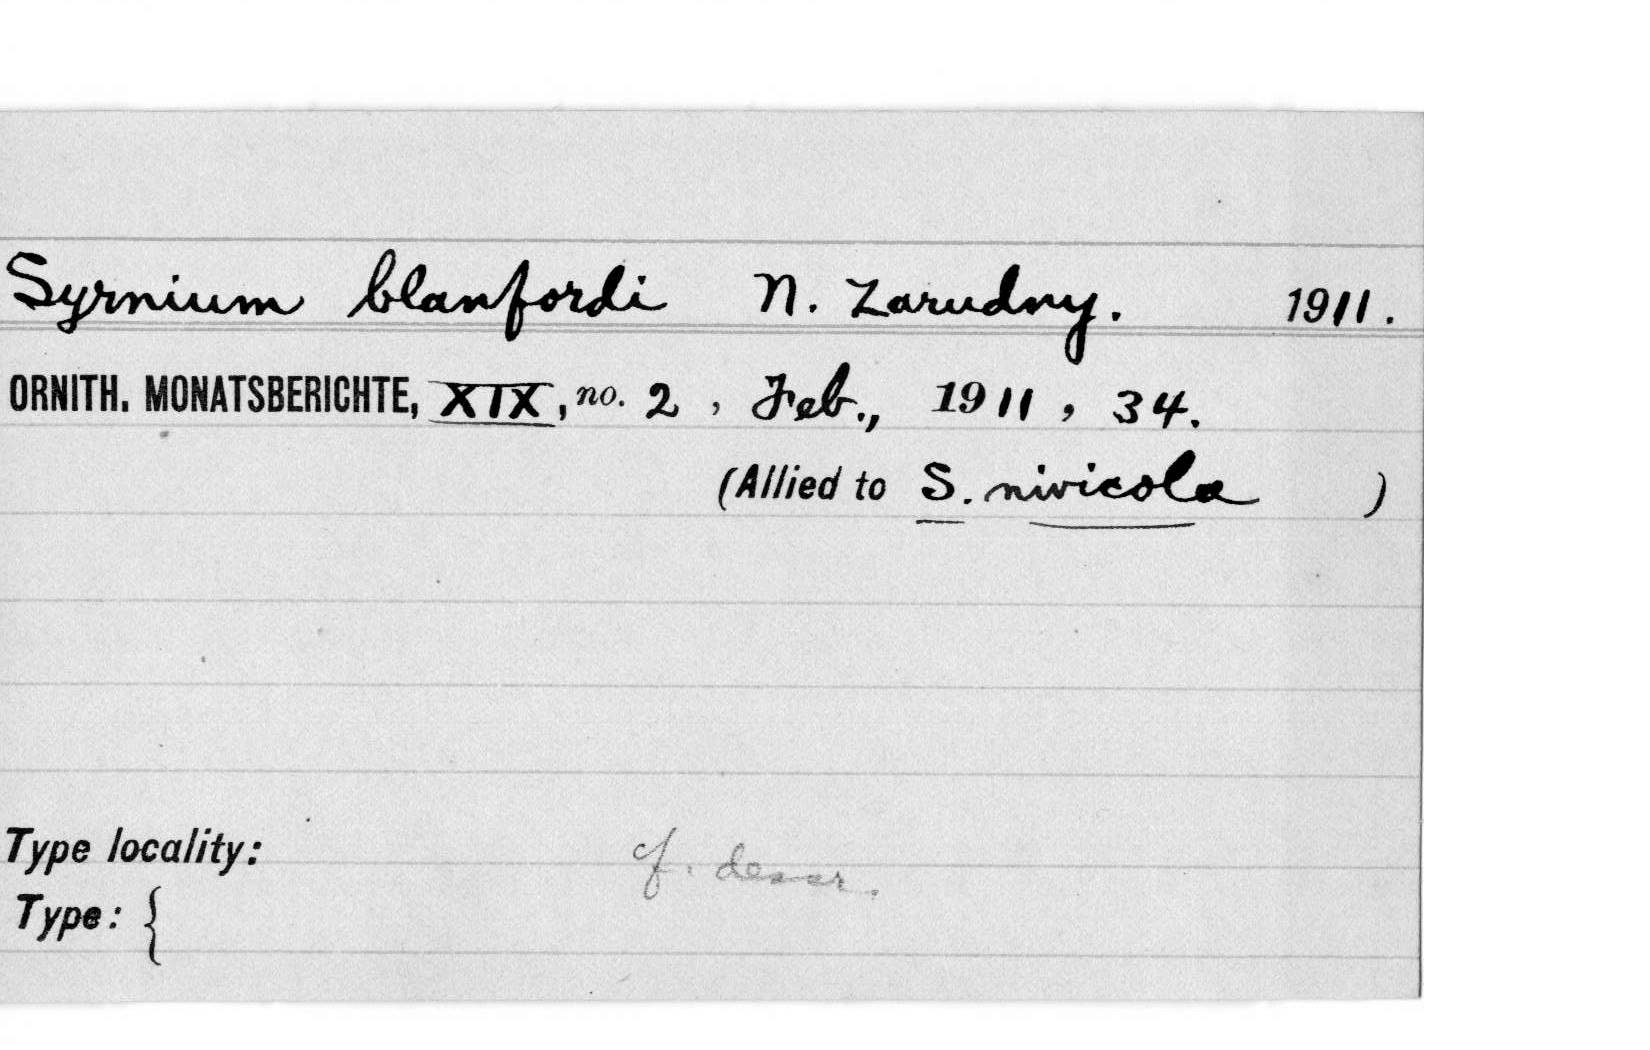 Syrnium blanfordi N. Zarudny. 1911.
ORNITH. MONATSBERICHTE, XIX, no. 2, Feb., 1911, 34.
(Allied to S. nivicola )
Type locality: cf. descr.
Type: {